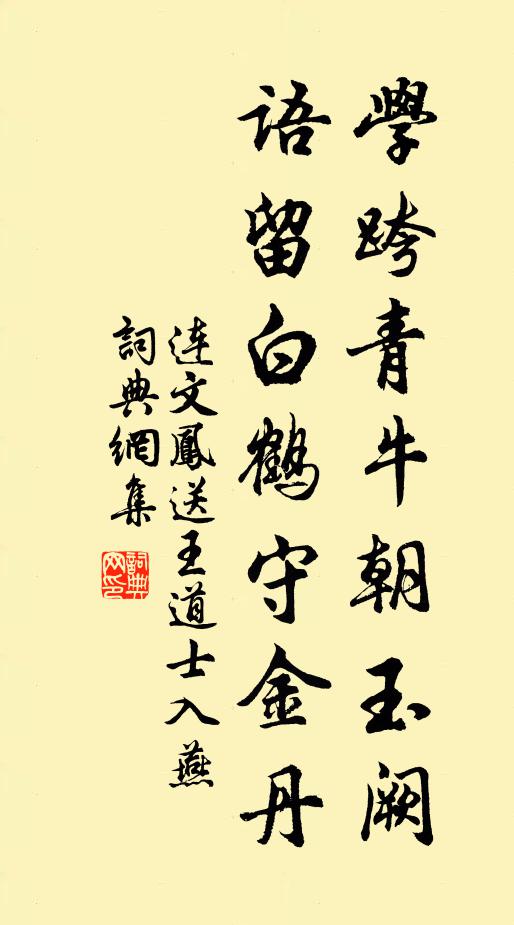 學跨青牛朝玉闕
語留白鶴守金丹
連文鳳送王道士入燕
詞典網集
詞典網印